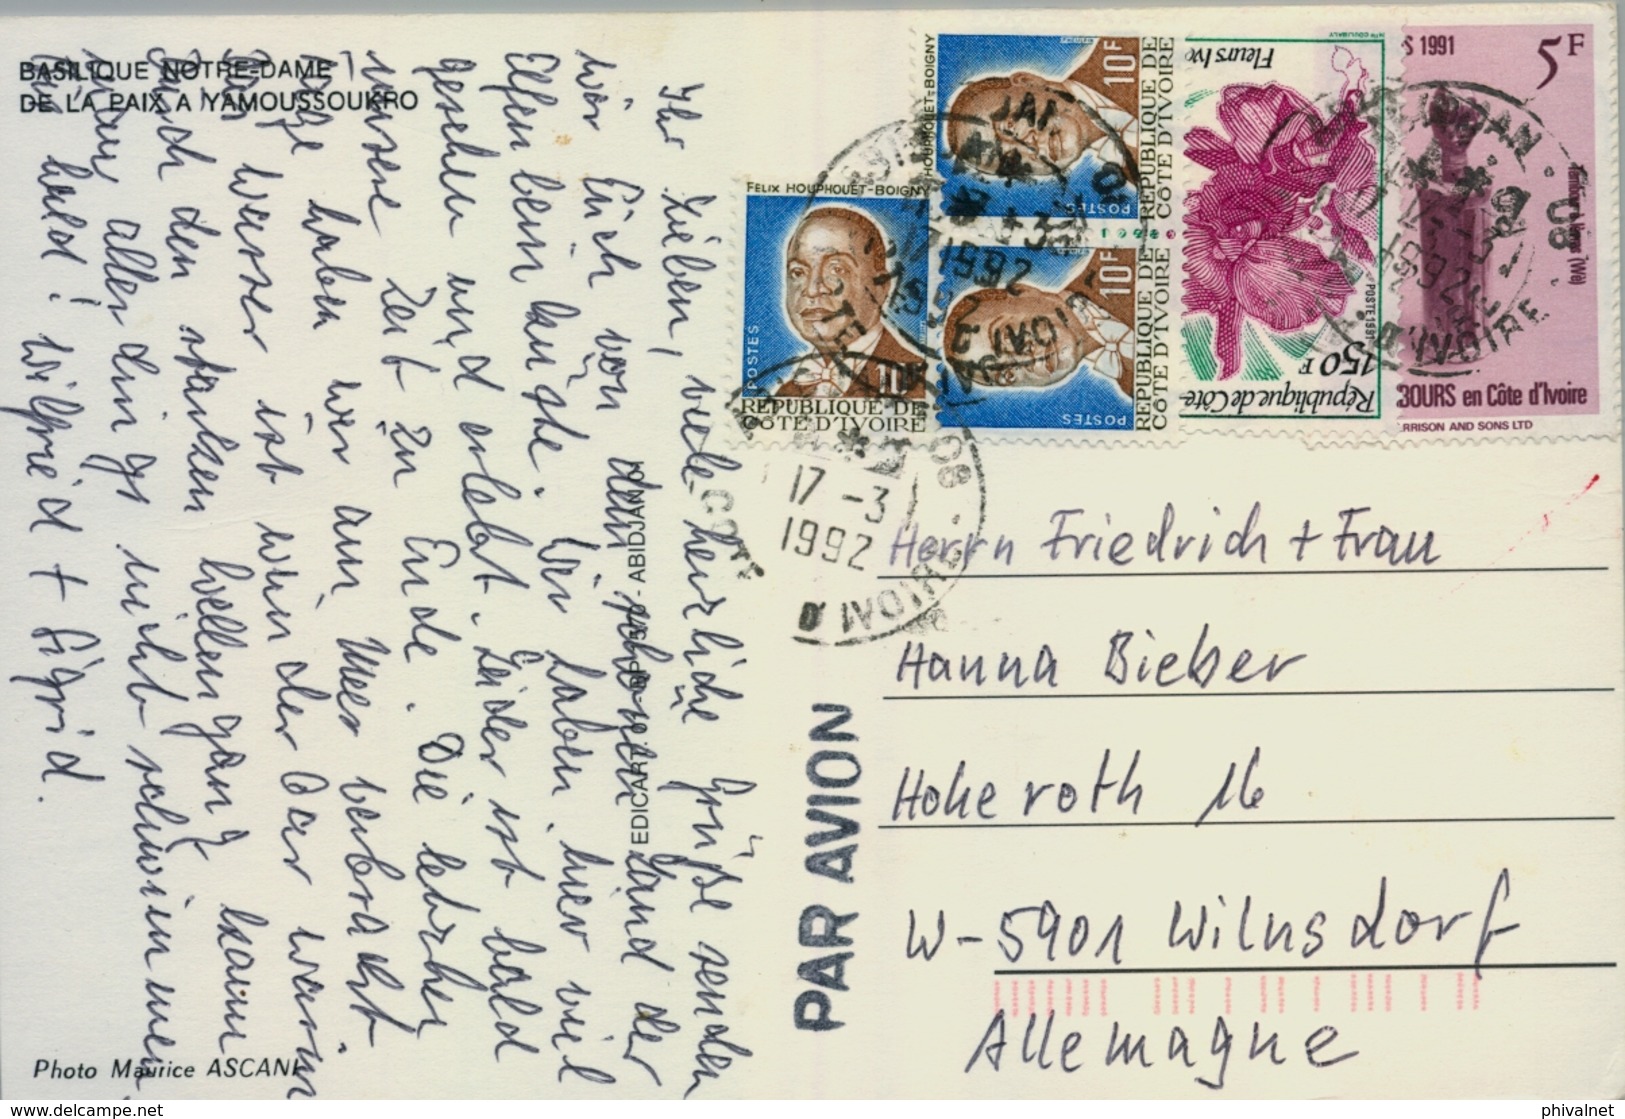 BASILIQUE NOTRE-DAME
DE LA PAIX A YAMOUSSOUKRO
Ihr Lieben, viele herzliche Grüße senden
wir Euch von dem schönen Land der
Elfenbeinküste. Wir haben hier viel
gesehen und erlebt. Leider ist bald
unsere Zeit zu Ende. Die letzten
Tage haben wir am Meer verbracht
Das Wasser ist wunderbar warm
durch den starken Wellengang kann
man allerdings nicht schwimmen
Bis bald! Wilfried + Sigrid.
Photo Maurice ASCANI
EDICARTE - ABIDJAN 01
PAR AVION
FELIX HOUPHOUET-BOIGNY
POSTES
10F
REPUBLIQUE DE
COTE D'IVOIRE
HOUPHOUET-BOIGNY
10F
POSTES
REPUBLIQUE DE
COTE D'IVOIRE
10F
POSTES
REPUBLIQUE DE
COTE D'IVOIRE
Fleurs Ivo
POSTE 1991
150F
République de Côte
S 1991
5F
BOURS en Côte d'Ivoire
RRISON AND SONS LTD
17 -3
1992
Herrn Friedrich + Frau
Hanna Bieber
Hoheroth 16
W-5901 Wilnsdorf
Allemagne
http://www.delcampe.net
phivalnet